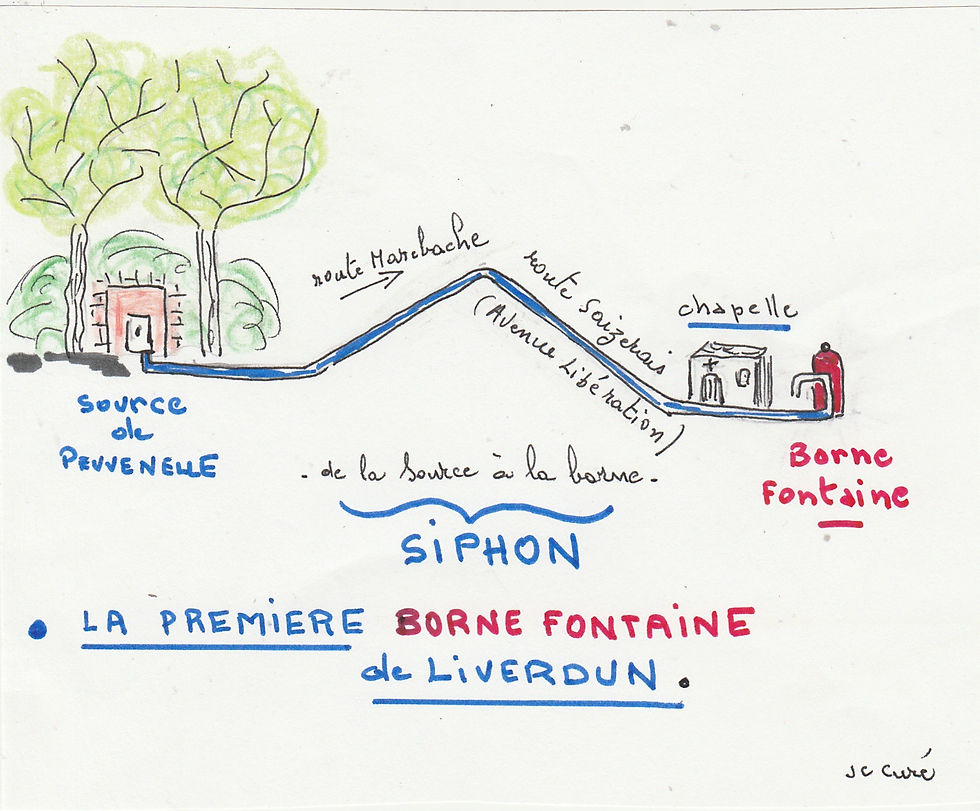 route Marbache
route Saizerais
(Avenue Libération)
chapelle
Source
de
PEVVENELLE
Borne
Fontaine
. de la source à la borne.
SiPHON
• LA PREMIERE BORNE FONTAINE
de LiVERDUN.
JC Curé